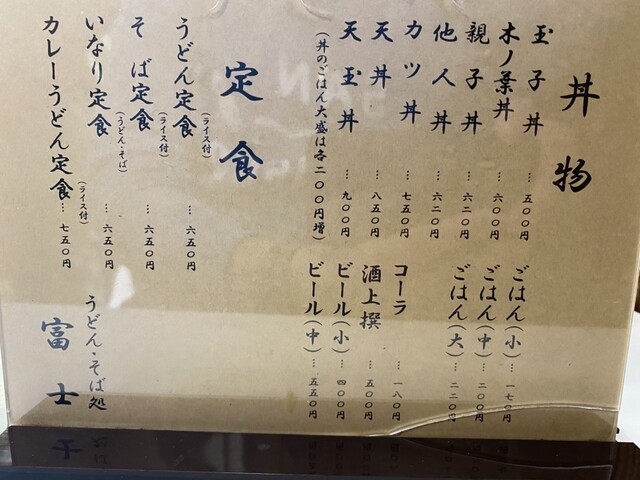 丼物
玉子丼…五〇〇円
木ノ葉丼…六〇〇円
親子丼…六二〇円
他人丼…六二〇円
カツ丼…七五〇円
天丼…八五〇円
天玉丼…九〇〇円
(丼のごはん大盛は各二〇〇円増)
ごはん(小)…一七〇円
ごはん(中)…二〇〇円
ごはん(大)…二二〇円
コーラ…一八〇円
酒上撰…五〇〇円
ビール(小)…四〇〇円
ビール(中)…五五〇円
定食
うどん定食(ライス付)…六五〇円
そば定食(ライス付)…六五〇円
いなり定食(うどん・そば)…六五〇円
カレーうどん定食(ライス付)…七五〇円
うどん・そば処
富士